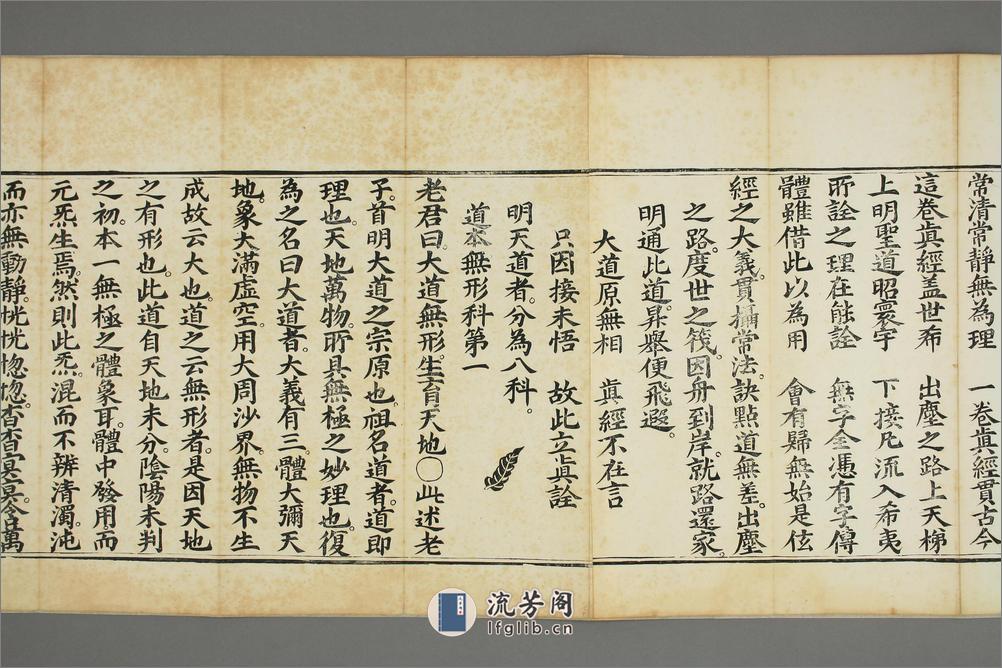 常清常靜無為理　一卷眞經貫古今
這卷眞經盖世希　出塵之路上天梯
上明聖道昭寰宇　下接凡流入希夷
所詮之理在能詮　無字全憑有字傳
體雖借此以為用　會有歸無始是伭
經之大義。貫攝常法。訣點道無差。出塵
之路。度世之筏。因舟到岸。就路還家。
明通此道。昇舉便飛遐。
大道原無相　眞經不在言
只因接未悟　故此立眞詮
明天道者。分為八科。
道本無形科第一
老君曰。大道無形。生育天地〇此述老
子。首明大道之宗原也。祖名道者。道即
理也。天地萬物。所具無極之妙理也。復
為之名曰大道者。大義有三。體大彌天
地。象大滿虛空。用大周沙界。無物不生
成故云大也。道之云無形者。是因天地
之有形也。此道自天地未分。陰陽未判
之初。本一無極之體象耳。體中發用。而
元炁生焉。然則此炁。混而不辨清濁。沌
而亦無動靜。恍恍惚惚。杳杳冥冥。含萬
流芳阁
lfglib.cn